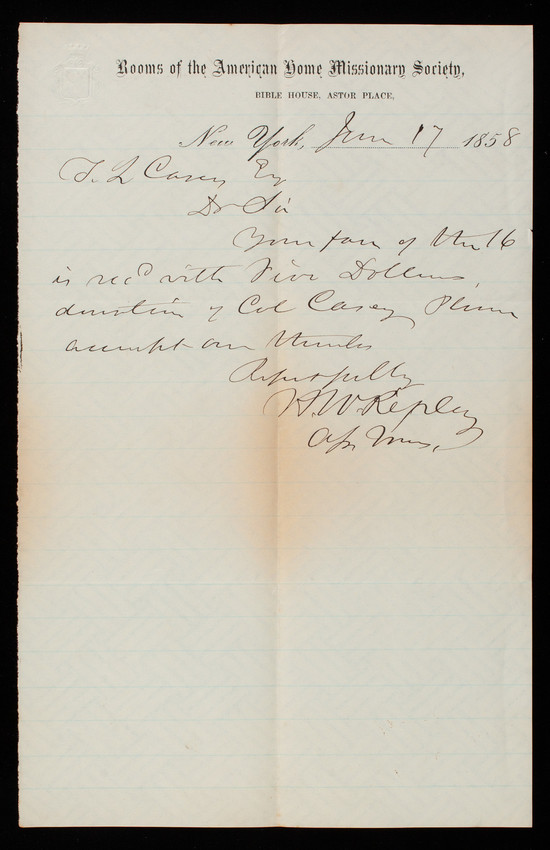 Rooms of the American Home Missionary Society,
BIBLE HOUSE, ASTOR PLACE,
New York, 17 1858
T. L Casey Esq
Dr Sir
Your favr of the 16
is recd with Five Dollars,
donation of Col Casey Please
accept our thanks
Respectfully
H. W. Ripley